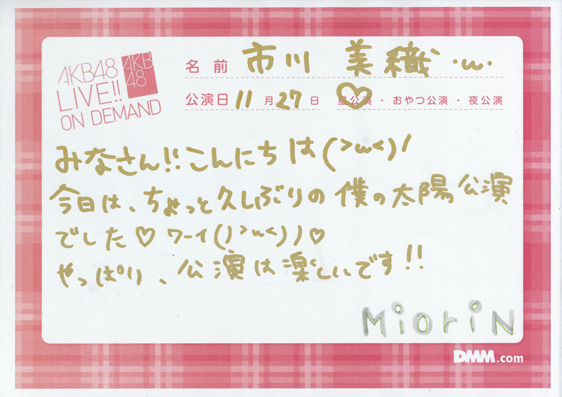 AKB48
LIVE!!
ON DEMAND
AKB
48
名前 市川 美織 ·ω·
公演日 11月27日 昼公演・おやつ公演・夜公演
みなさん!!こんにちは(>ω<)/
今日は、ちょっと久しぶりの僕の太陽公演
でした♡ワーイ(ノ>ω<)ノ♡
やっぱり、公演は楽しいです!!
MioriN
DMM.com